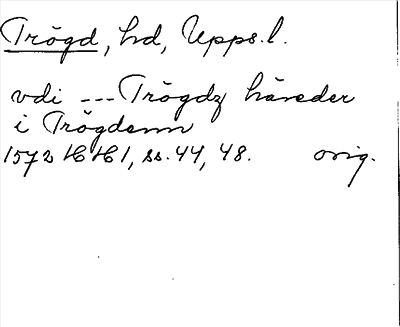 Trögd, hd, Upps.l.
vdi --- Trögdz häreder
i Trögdenn
1572 HH 1, ss. 44, 48. orig.